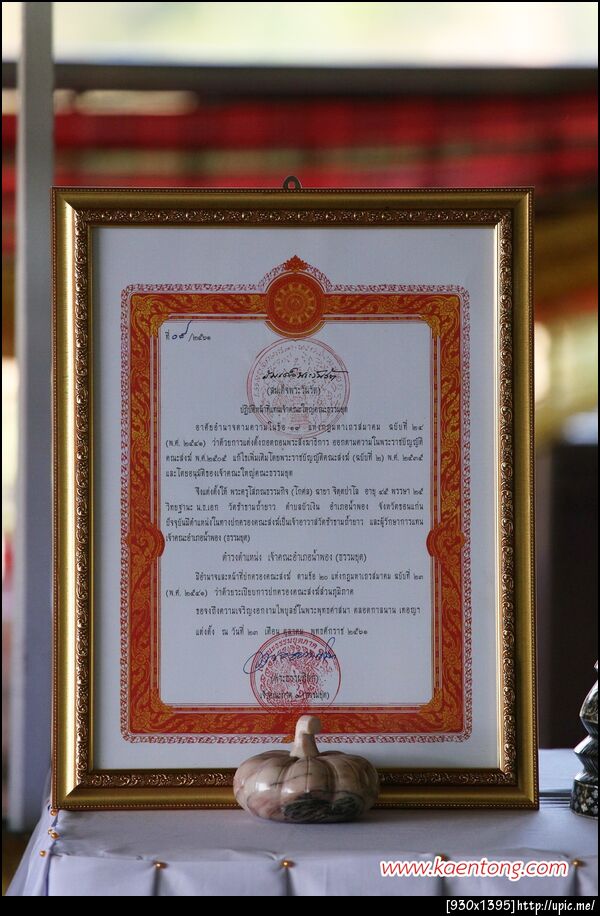 ที่ ๐๕ /๒๕๖๑
(สมเด็จพระวันรัต)
ปฏิบัติหน้าที่แทนเจ้าคณะใหญ่คณะธรรมยุต
อาศัยอำนาจตามความในข้อ แห่งกฎมหาเถรสมาคม ฉบับที่ ๒๔
(พ.ศ. ๒๕๔๑) ว่าด้วยการแต่งตั้งถอดถอนพระสังฆาธิการ ออกตามความในพระราชบัญญัติ
คณะสงฆ์ พ.ศ.๒๕๐๕ แก้ไขเพิ่มเติมโดยพระราชบัญญัติคณะสงฆ์ (ฉบับที่ ๒) พ.ศ. ๒๕๓๕
และโดยอนุมัติของเจ้าคณะใหญ่คณะธรรมยุต
จึงแต่งตั้งให้ พระครูโสภณธรรมกิจ (โกศล) ฉายา จิตฺตปาโล อายุ ๔๕ พรรษา ๒๕
วิทยฐานะ น.ธ.เอก วัดธำรามถ้ำยาว ตำบลบัวเงิน อำเภอน้ำพอง จังหวัดขอนแก่น
ปัจจุบันมีตำแหน่งในทางปกครองคณะสงฆ์เป็นเจ้าอาวาสวัดธำรามถ้ำยาว และผู้รักษาการแทน
เจ้าคณะอำเภอน้ำพอง (ธรรมยุต)
ดำรงตำแหน่ง เจ้าคณะอำเภอน้ำพอง (ธรรมยุต)
มีอำนาจและหน้าที่ปกครองคณะสงฆ์ ตามข้อ ๒๐ แห่งกฎมหาเถรสมาคม ฉบับที่ ๒๓
(พ.ศ. ๒๕๔๑) ว่าด้วยระเบียบการปกครองคณะสงฆ์ส่วนภูมิภาค
ขอจงถึงความเจริญงอกงามไพบูลย์ในพระพุทธศาสนา ตลอดกาลนาน เทอญฯ
แต่งตั้ง ณ วันที่ ๒๓ เดือน ตุลาคม พุทธศักราช ๒๕๖๑
www.kaentong.com
[930x1395]http://upic.me/